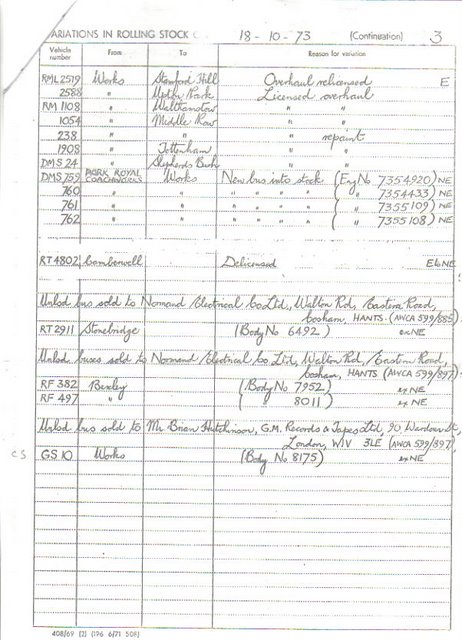 ARIATIONS IN ROLLING STOCK 18-10-73 (Continuation) 3
Vehicle number From To Reason for variation
RML 2519 Works Stamford Hill Overhaul relicensed E
2588 " Upton Park Licensed overhaul
RM 1108 " Walthamstow " "
1054 " Middle Row " "
238 " " " repaint
1908 " Tottenham " "
DMS 24 " Shepherds Bush " "
DMS 759 PARK ROYAL COACHWORKS Works New bus into stock (Eng No 7354920) NE
760 " " " " " " ( " 7354433) NE
761 " " " " " " ( " 7355109) NE
762 " " " " " " ( " 7355108) NE
RT 4802 Camberwell Delicensed E6NE
Unlsd bus sold to Normand Electrical Co Ltd, Walton Rd, Eastern Road,
Cosham, HANTS. (AWCA 599/885)
RT 2911 Stonebridge (Body No 6492) exNE
Unlsd buses sold to Normand Electrical Co Ltd, Walton Rd, Eastern Road,
Cosham, HANTS (AWCA 599/897)
RF 382 Bexley (Body No 7952) exNE
RF 497 " ( " 8011) exNE
Unlsd bus sold to Mr Brian Hutchinson, G.M. Records & Tapes Ltd, 90 Wardour St,
London, W1V 3LE (AWCA 599/897),
CS GS 10 Works (Body No 8175) exNE
408/69 (2) (196 6/71 508)